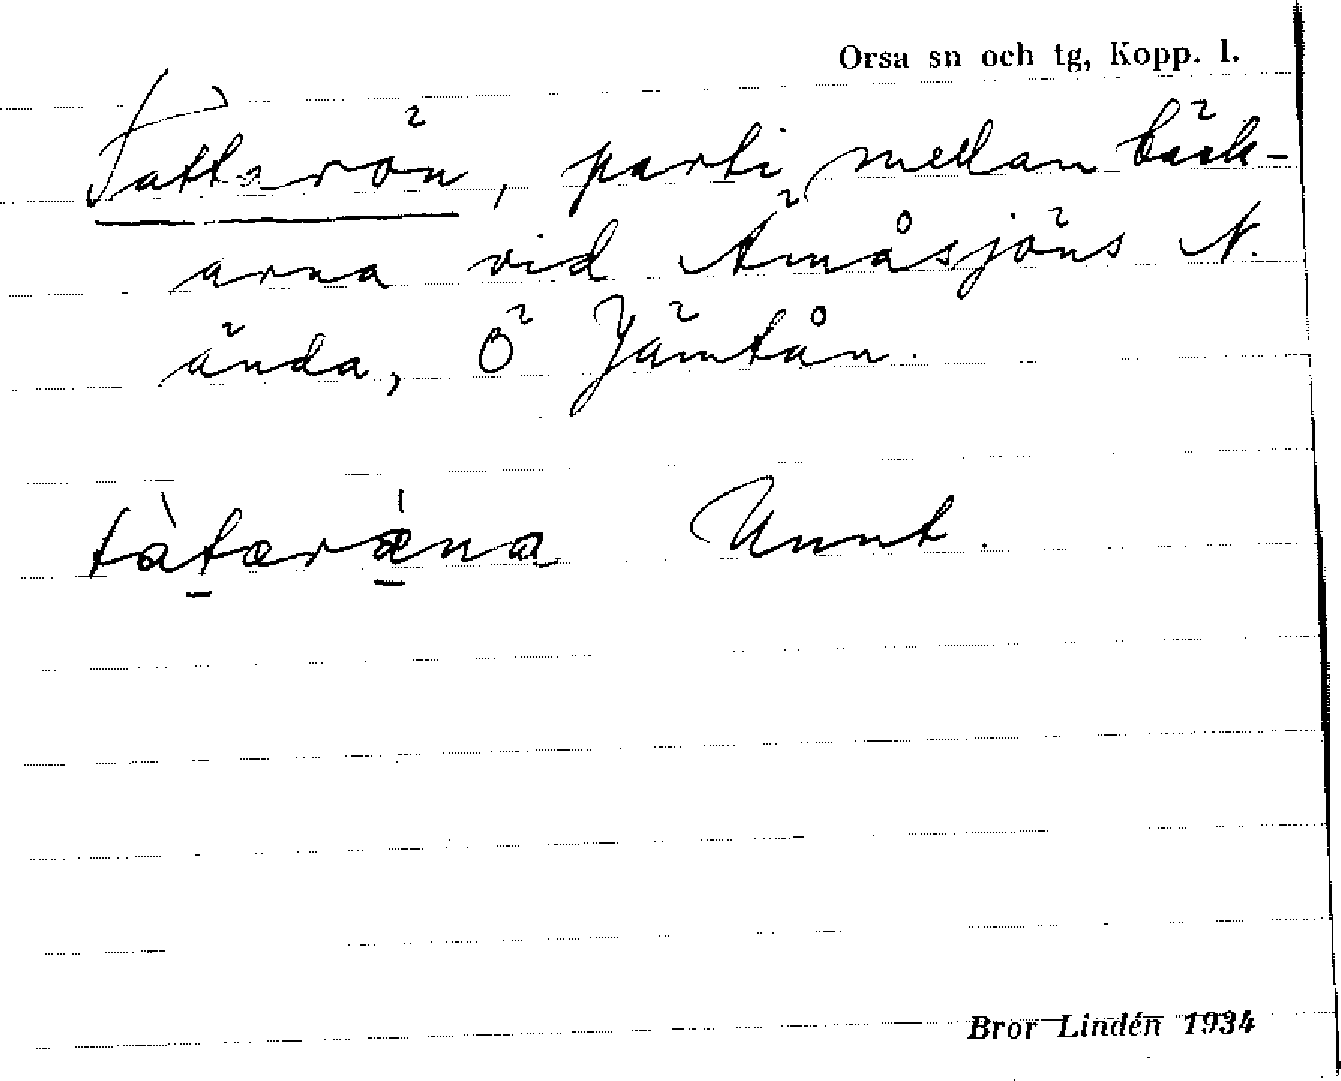 Orsa sn och tg, Kopp. l.
Tattarön, parti mellan bäck-
arna vid Ämåsjöns N.
ända, Ö Jämtån.
tàtæræna Unnt.
Bror Lindén 1934